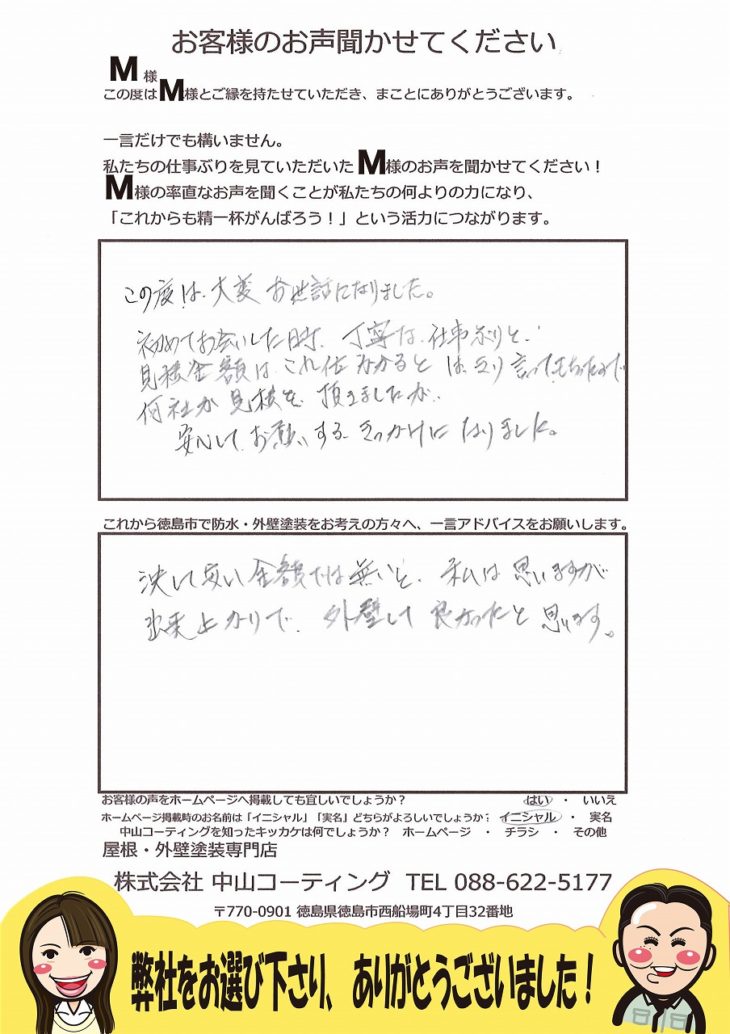 お客様のお声聞かせてください
M 様
この度はM様とご縁を持たせていただき、まことにありがとうございます。
一言だけでも構いません。
私たちの仕事ぶりを見ていただいたM様のお声を聞かせてください！
M様の率直なお声を聞くことが私たちの何よりの力になり、
「これからも精一杯がんばろう！」という活力につながります。
この度は、大変お世話になりました。
初めてお会いした時、丁寧な仕事ぶりと、
見積金額は、これ位かかるとはっきり言ってもらたので
何社か見積を、頂きましたが、
安心して、お願いするきっかけになりました。
これから徳島市で防水・外壁塗装をお考えの方々へ、一言アドバイスをお願いします。
決して安い金額では無いと、私は思いますが
出来上がりで、外壁して良かったと思います。
お客様の声をホームページへ掲載しても宜しいでしょうか？ はい ・ いいえ
ホームページ掲載時のお名前は「イニシャル」「実名」どちらがよろしいでしょうか？ イニシャル ・ 実名
中山コーティングを知ったキッカケは何でしょうか？ ホームページ ・ チラシ ・ その他
屋根・外壁塗装専門店
株式会社 中山コーティング TEL 088-622-5177
〒770-0901 徳島県徳島市西船場町4丁目32番地
弊社をお選び下さり、ありがとうございました！